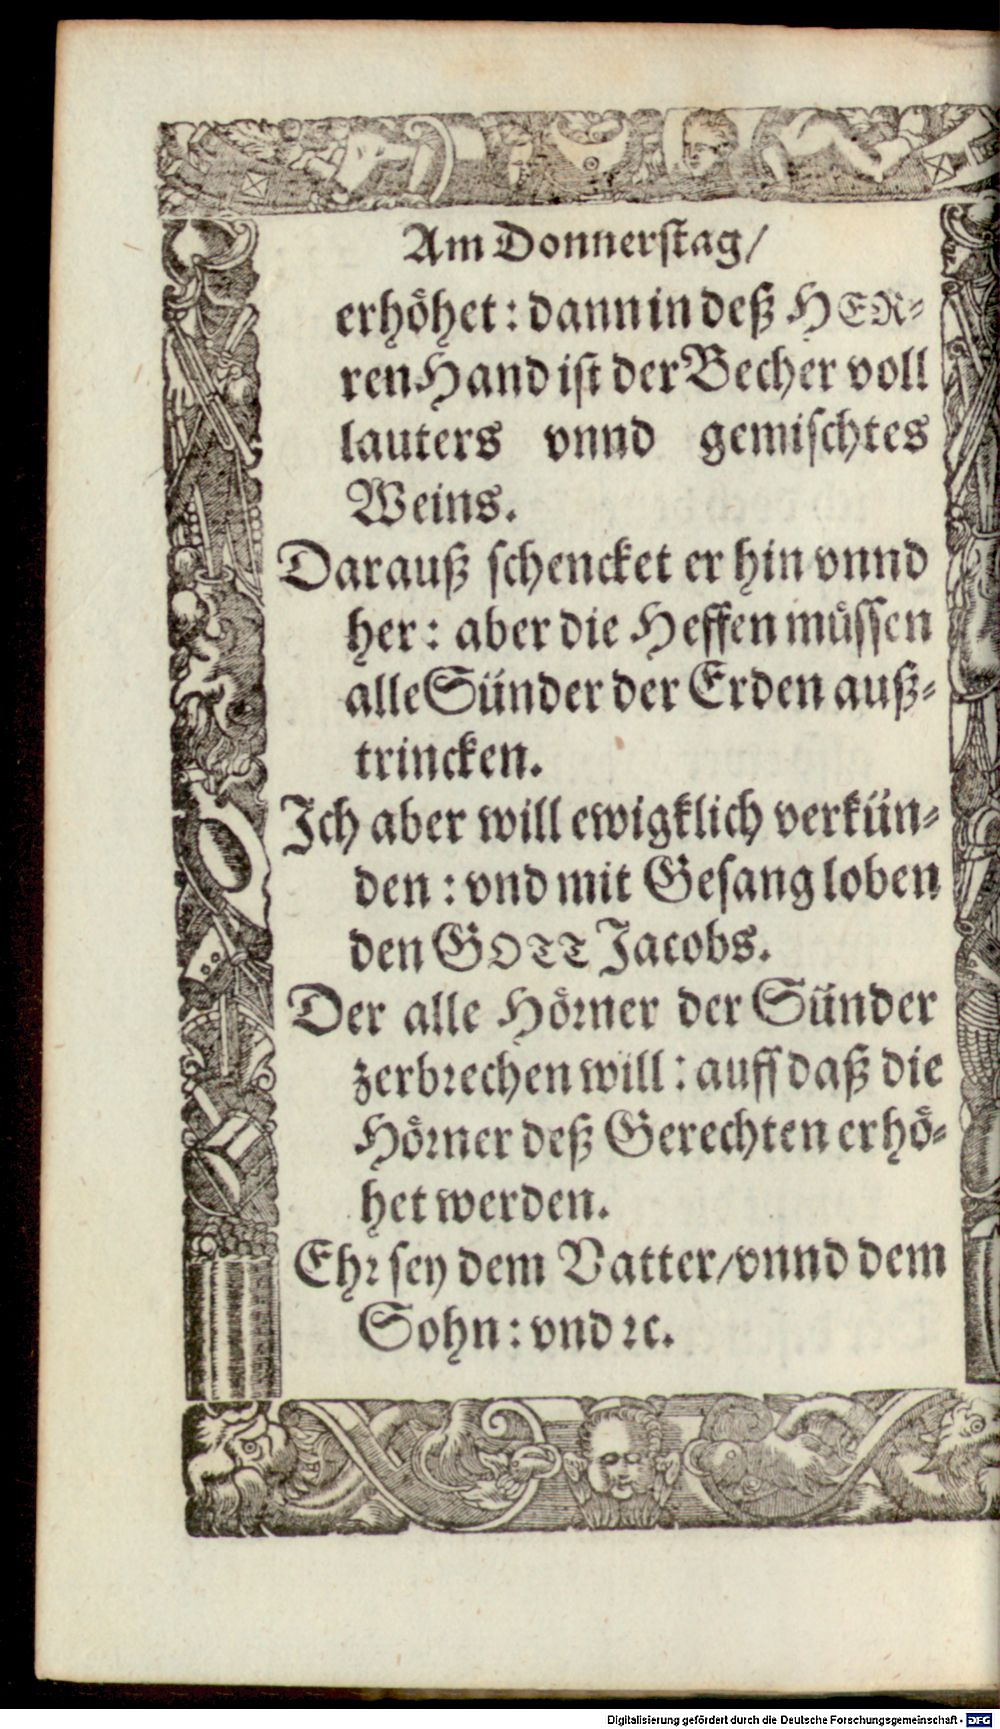 Am Donnerstag/
erhöhet: dann in deß HER-
ren Hand ist der Becher voll
lauters vnnd gemischtes
Weins.
Darauß schencket er hin vnnd
her: aber die Heffen müssen
alle Sünder der Erden auß-
trincken.
Ich aber will ewigklich verkün-
den: vnd mit Gesang loben
den GOTT Jacobs.
Der alle Hörner der Sünder
zerbrechen will: auff daß die
Hörner deß Gerechten erhö-
het werden.
Ehr sey dem Vatter/vnnd dem
Sohn: vnd ꝛc.
Digitalisierung gefördert durch die Deutsche Forschungsgemeinschaft - DFG